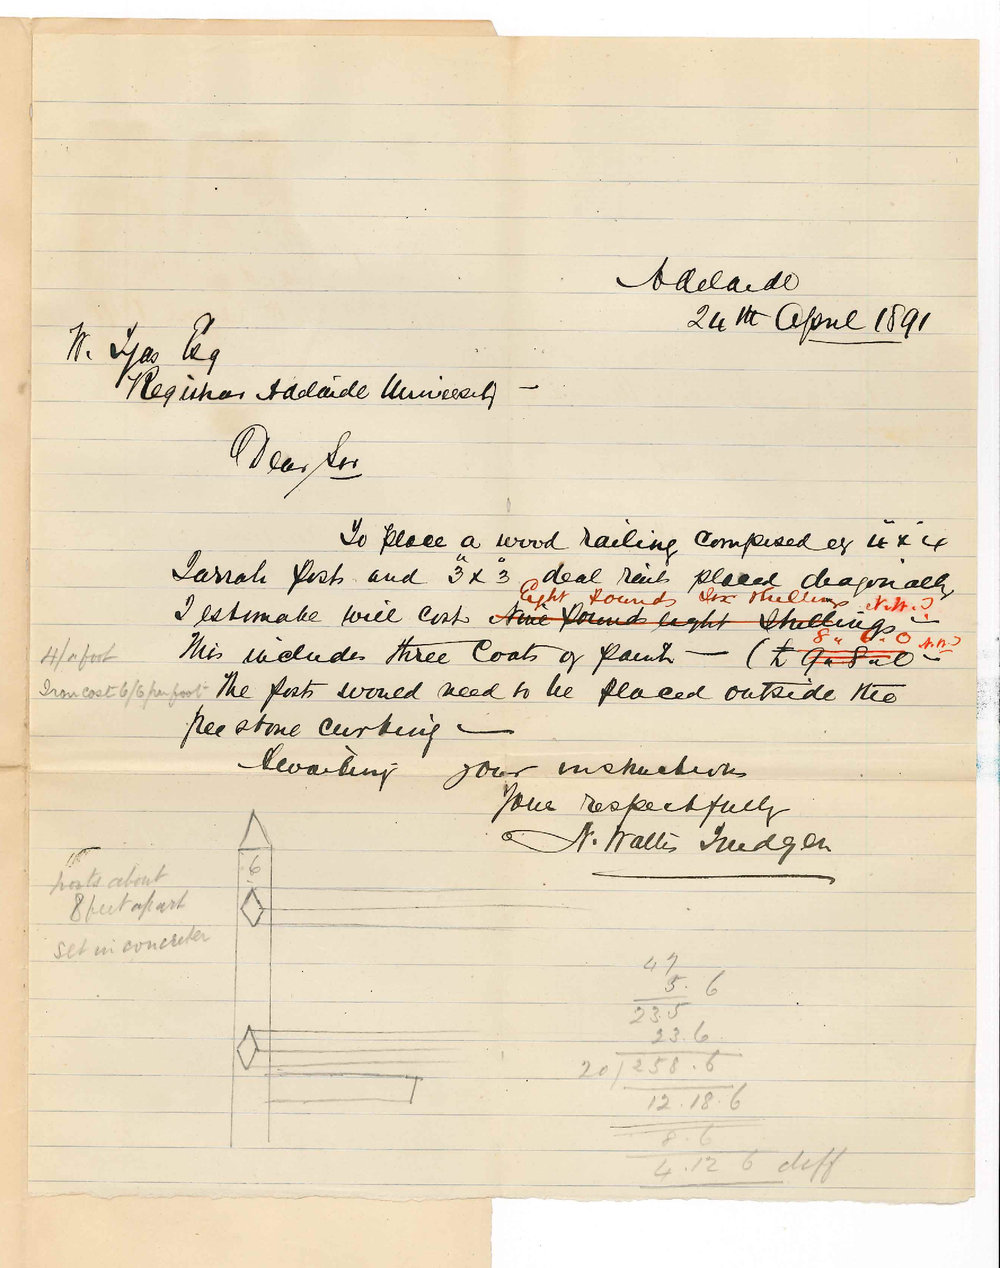 Adelaide
24th April 1891
W. Tyas Esq
Registrar Adelaide University —
Dear Sir
To place a wood railing composed of 4" x 4"
Jarrah posts and 3" x 3" deal rails placed diagonally
Eight Pounds Six Shillings N.W.T
I estimate will cost Nine Pounds eight Shillings —
8 " 6 " 0 N.W.T
This includes three Coats of paint — (£ 9 " 8 " 0 —
4/ a foot
Iron cost 6/6 per foot
The posts would need to be placed outside the
freestone curbing —
Awaiting your instructions
Yours respectfully
N. Wallis Trudgen
6
posts about
8 feet apart
set in concrete
47
5. 6
235
23. 6
20/258. 6
12. 18. 6
8. 6
4. 12 6 diff